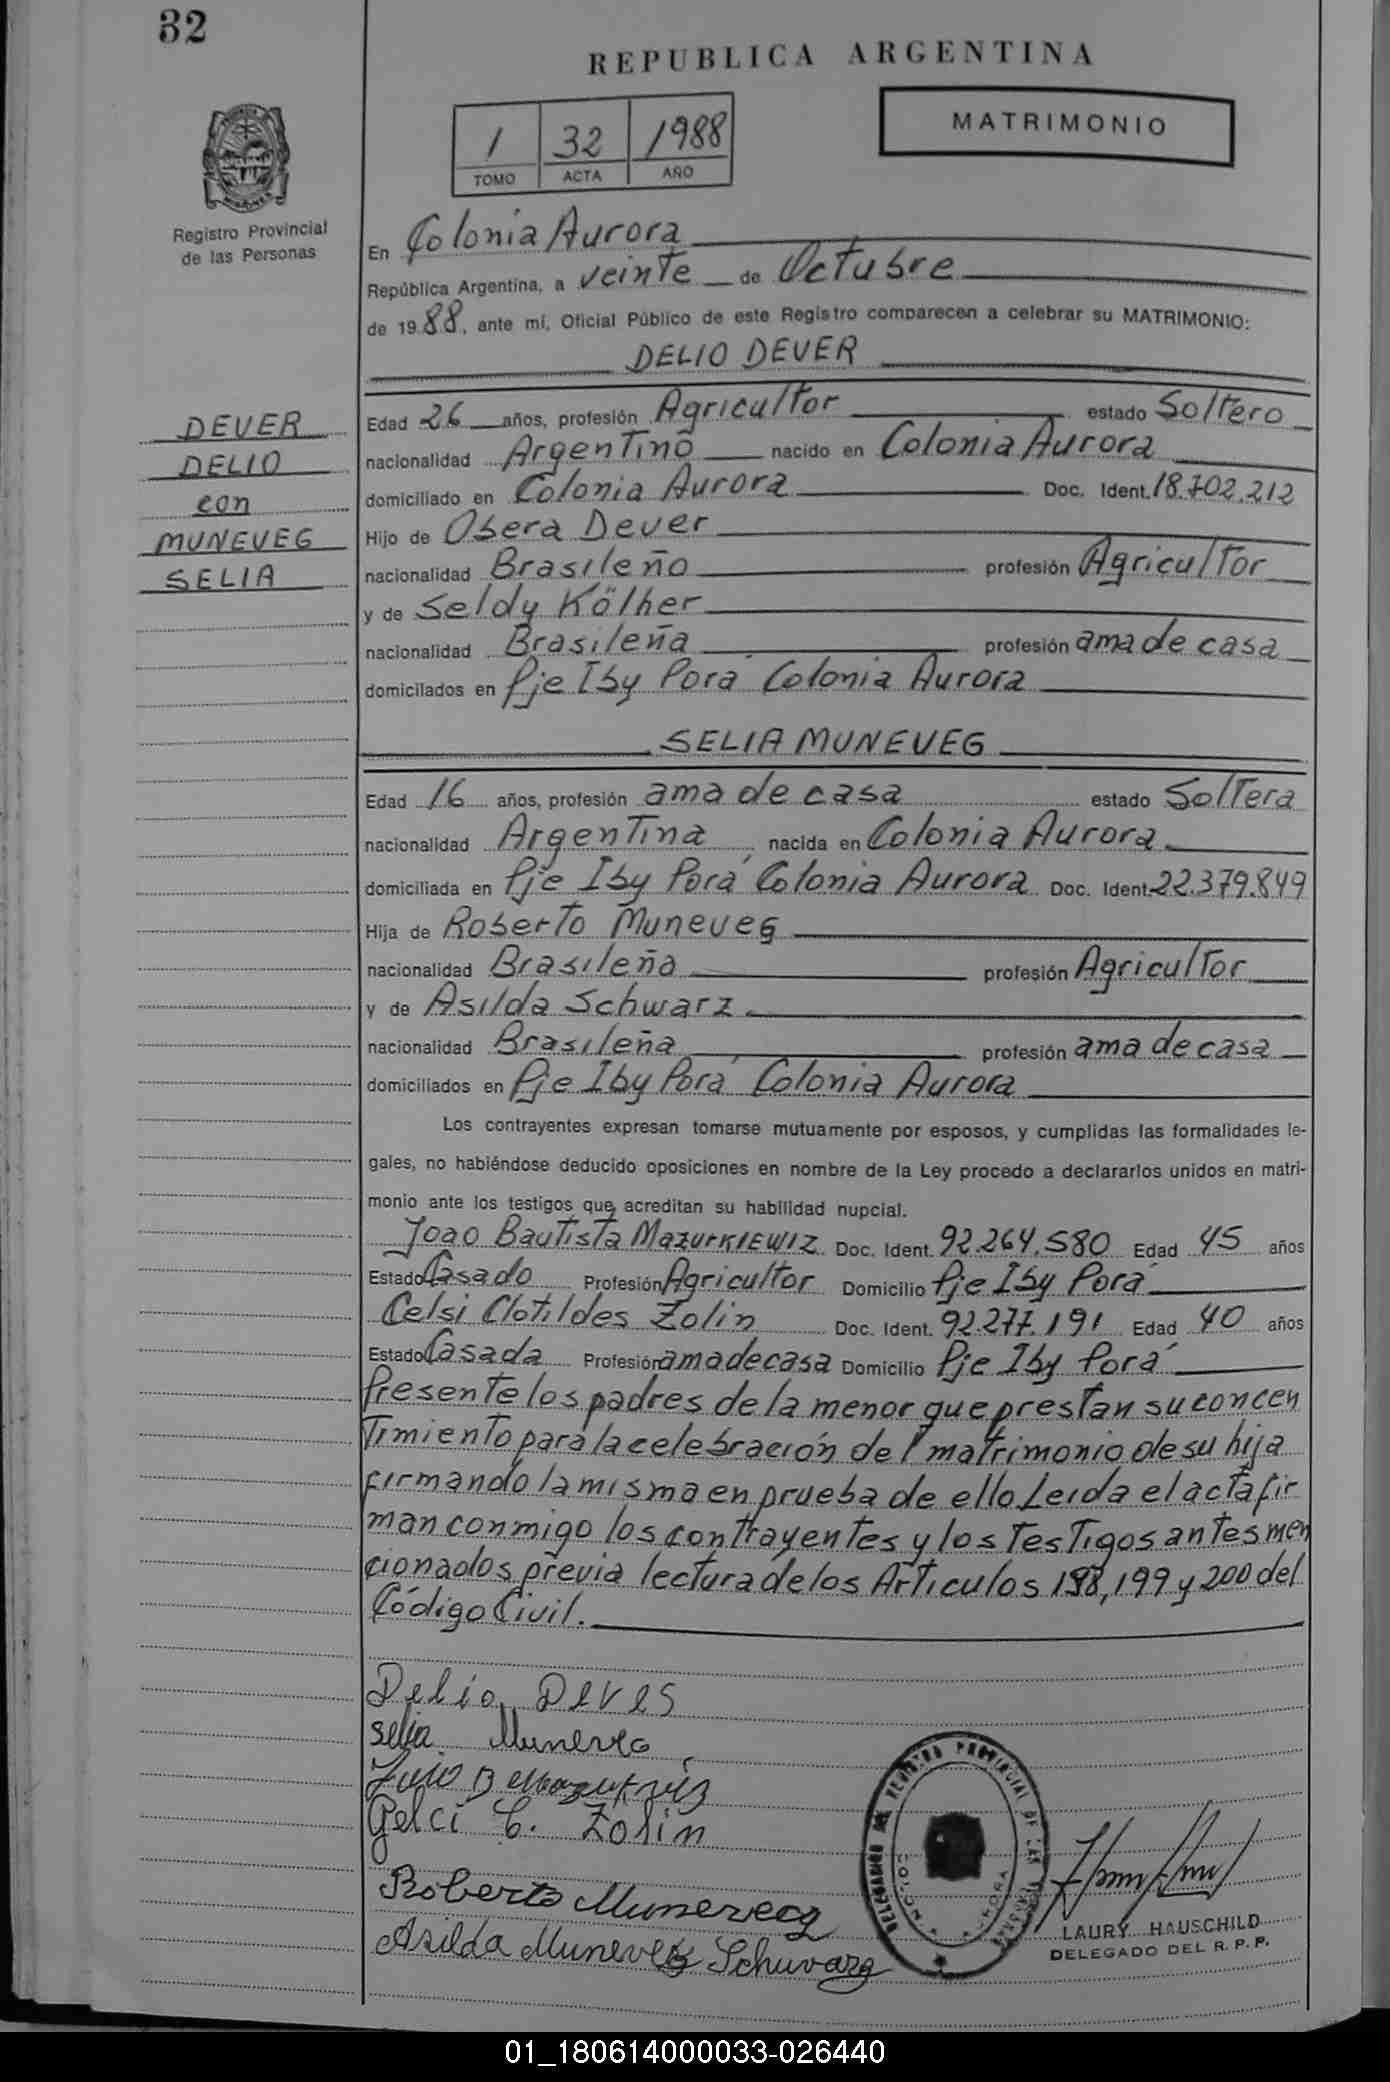 32
REPUBLICA ARGENTINA
MATRIMONIO
1 32 1988
TOMO ACTA AÑO
Registro Provincial
de las Personas
En Colonia Aurora
República Argentina, a veinte de Octubre
de 1988, ante mí, Oficial Público de este Registro comparecen a celebrar su MATRIMONIO:
DELIO DEVER
DEVER
DELIO
con
MUNEVEG
SELIA
Edad 26 años, profesión Agricultor estado Soltero
nacionalidad Argentino nacido en Colonia Aurora
domiciliado en Colonia Aurora Doc. Ident. 18.702.212
Hijo de Obera Dever
nacionalidad Brasileño profesión Agricultor
y de Seldy Kölher
nacionalidad Brasileña profesión ama de casa
domicilados en Pje Iby Porá Colonia Aurora
SELIA MUNEVEG
Edad 16 años, profesión ama de casa estado Soltera
nacionalidad Argentina nacida en Colonia Aurora
domiciliada en Pje Iby Porá Colonia Aurora Doc. Ident. 22.379.849
Hija de Roberto Muneveg
nacionalidad Brasileña profesión Agricultor
y de Asilda Schwarz
nacionalidad Brasileña profesión ama de casa
domiciliados en Pje Iby Porá Colonia Aurora
Los contrayentes expresan tomarse mutuamente por esposos, y cumplidas las formalidades le-
gales, no habiéndose deducido oposiciones en nombre de la Ley procedo a declararlos unidos en matri-
monio ante los testigos que acreditan su habilidad nupcial.
Joao Bautista MAZURKIEWIZ Doc. Ident. 92.264.580 Edad 45 años
Estado Casado Profesión Agricultor Domicilio Pje Iby Porá
Celsi Clotildes Zolin Doc. Ident. 92.277.191 Edad 40 años
Estado Casada Profesión ama de casa Domicilio Pje Iby Porá
Presente los padres de la menor que prestan su concen
timiento para la celebración del matrimonio de su hija
firmando la misma en prueba de ello Leida el acta fir
man conmigo los contrayentes y los testigos antes men
cionados previa lectura de los Articulos 198, 199 y 200 del
Código Civil.
Delio Deves
Selia Muneveg
Gelci C. Zolin
Roberto Muneveg
Asilda Muneveg Schwarz
REGISTRO PROVINCIAL DE LAS PERSONAS
COLONIA AURORA
LAURY HAUSCHILD
DELEGADO DEL R. P. P.
01_180614000033-026440